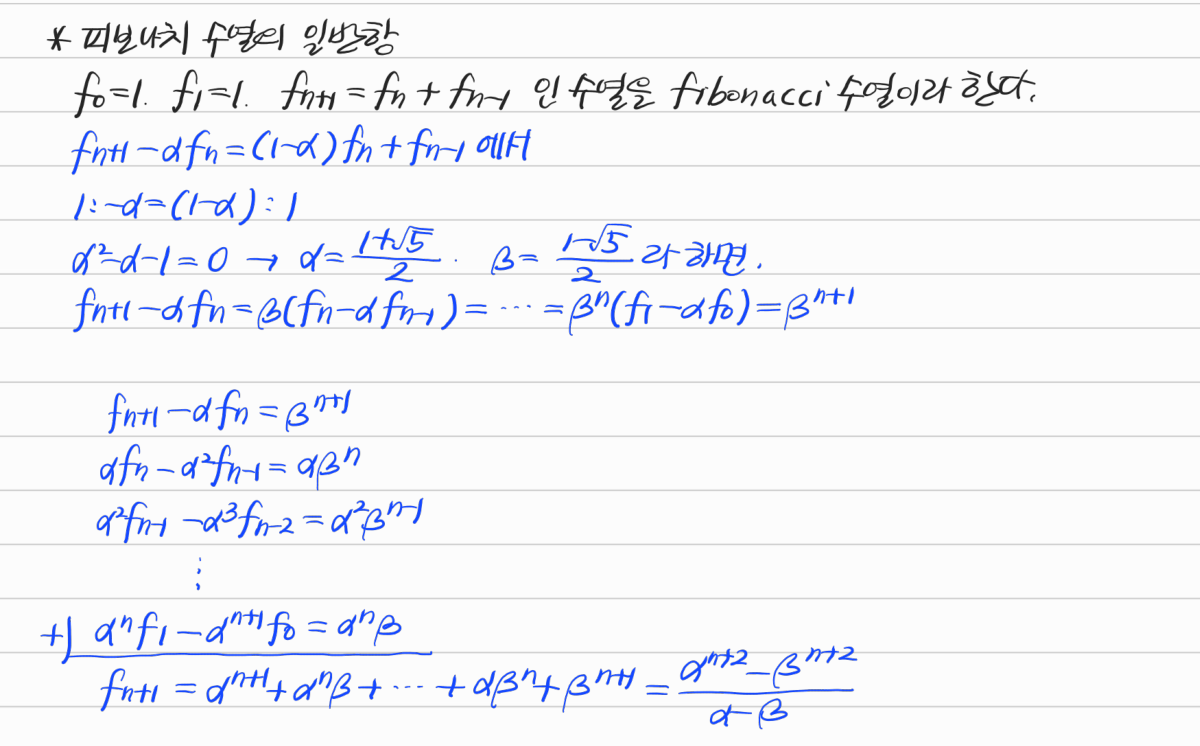 * 피보나치 수열의 일반항
f₀=1. f₁=1. fₙ₊₁ = fₙ + fₙ₋₁ 인 수열을 fibonacci 수열이라 한다.
fₙ₊₁ - αfₙ = (1-α)fₙ + fₙ₋₁ 에서
1 : -α = (1-α) : 1
α² - α - 1 = 0 → α = (1+√5)/2 . β = (1-√5)/2 라 하면.
fₙ₊₁ - αfₙ = β(fₙ - αfₙ₋₁) = ⋯ = βⁿ(f₁ - αf₀) = βⁿ⁺¹
fₙ₊₁ - αfₙ = βⁿ⁺¹
αfₙ - α²fₙ₋₁ = αβⁿ
α²fₙ₋₁ - α³fₙ₋₂ = α²βⁿ⁻¹
⋮
+) αⁿf₁ - αⁿ⁺¹f₀ = αⁿβ
fₙ₊₁ = αⁿ⁺¹ + αⁿβ + ⋯ + αβⁿ + βⁿ⁺¹ = (αⁿ⁺² - βⁿ⁺²)/(α - β)